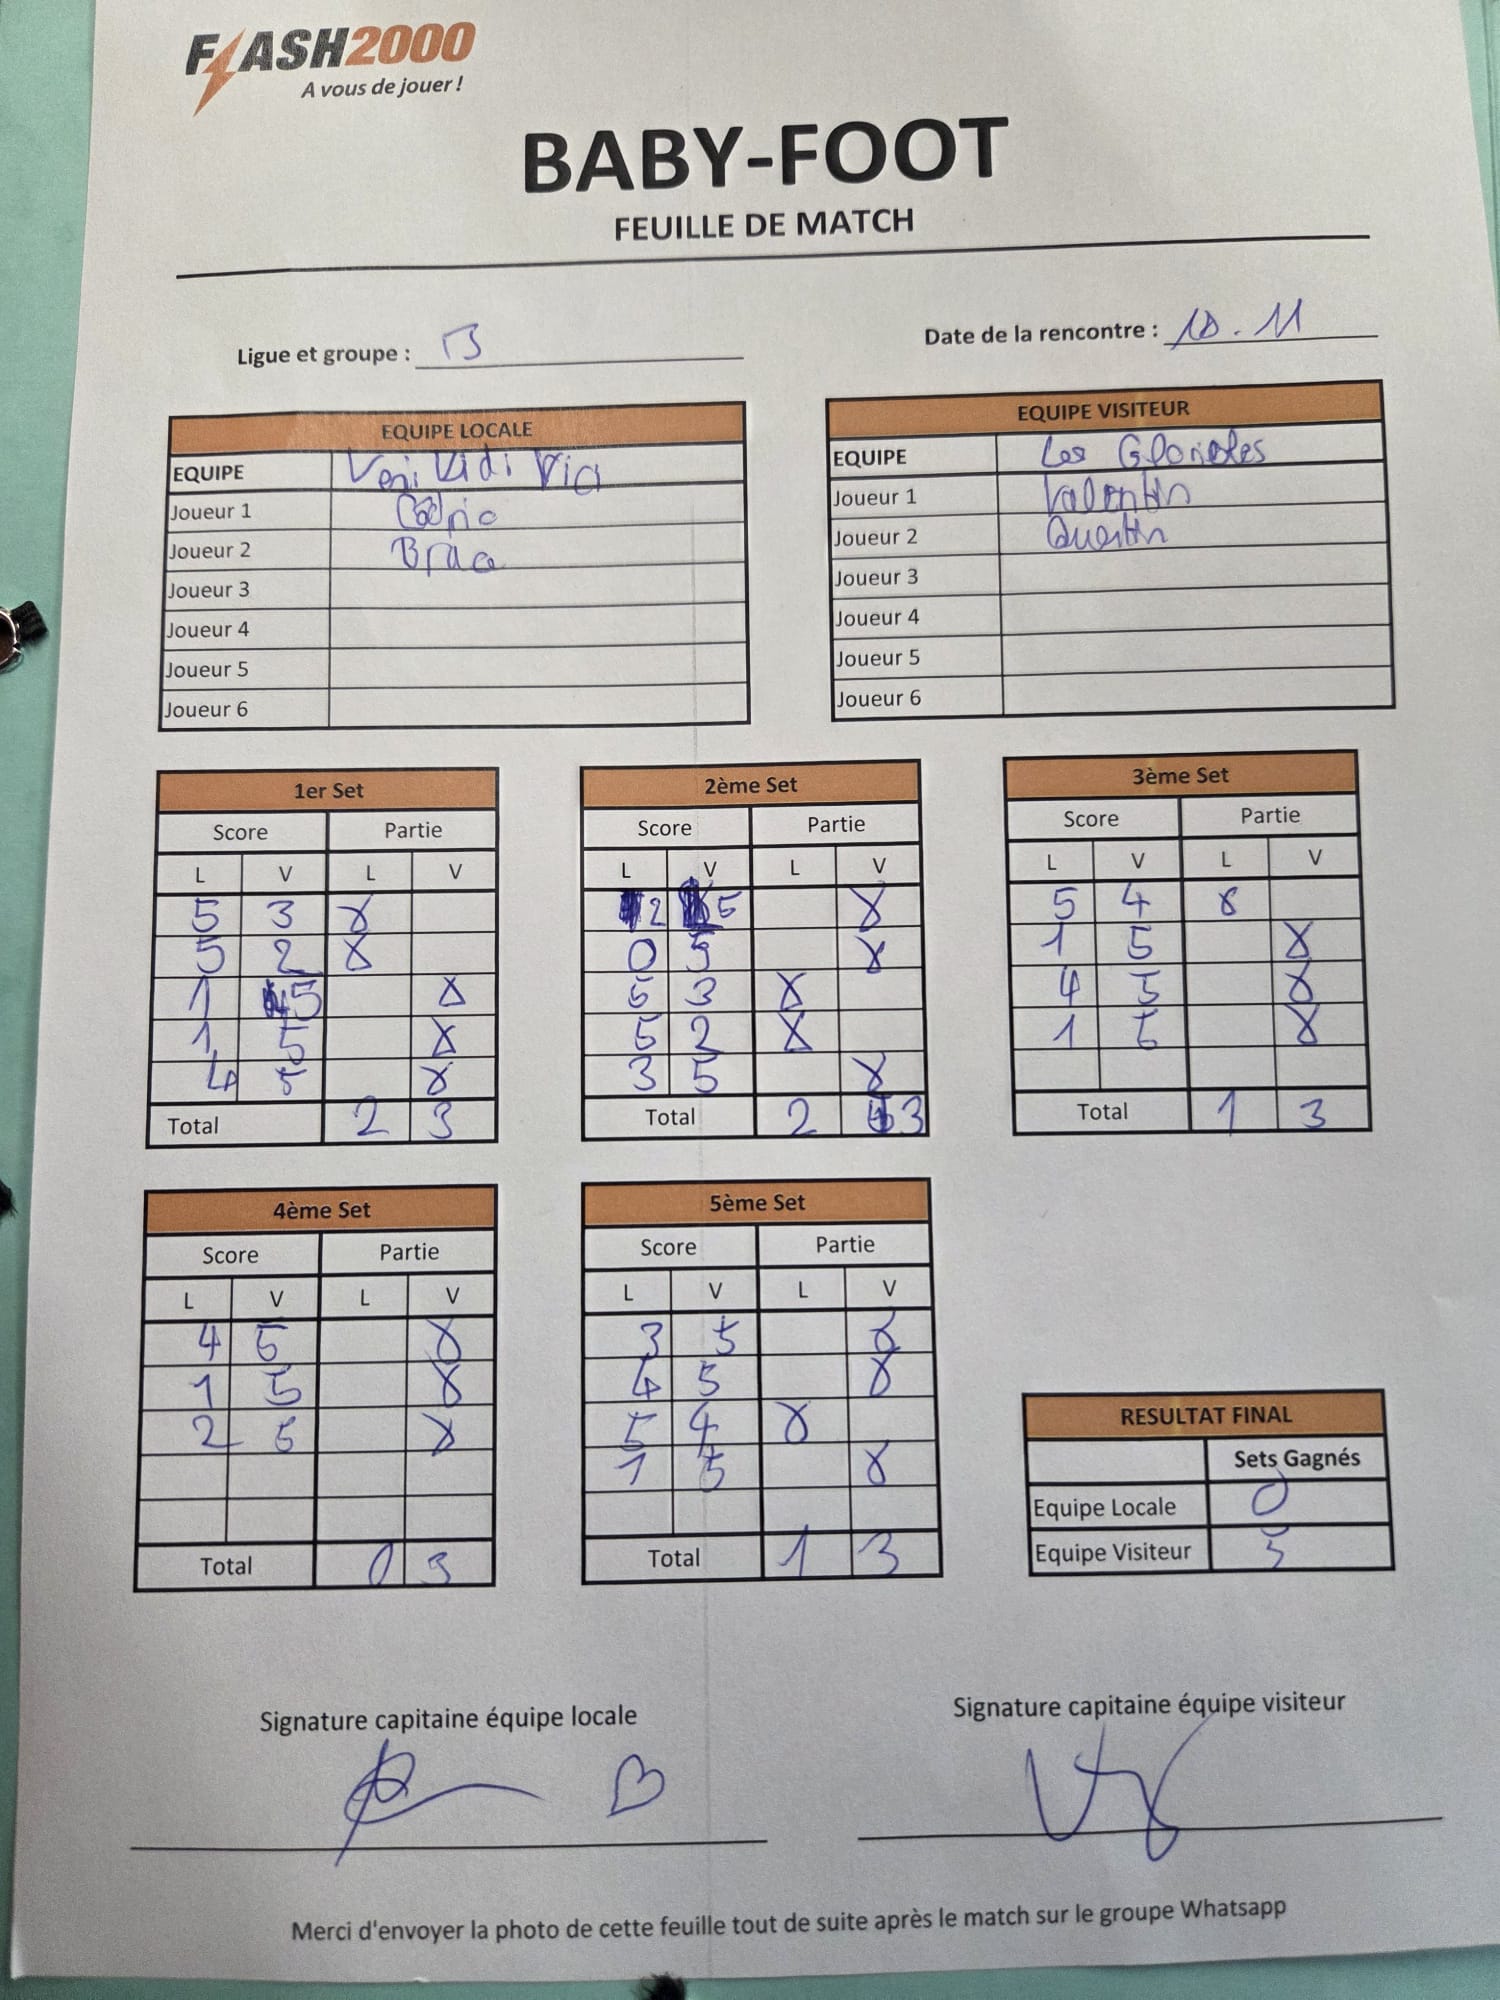 FLASH2000
A vous de jouer !
BABY-FOOT
FEUILLE DE MATCH
Ligue et groupe : B
Date de la rencontre : 10.11
EQUIPE LOCALE
EQUIPE Veni Vidi Vici
Joueur 1 Cédric
Joueur 2
Joueur 3
Joueur 4
Joueur 5
Joueur 6
EQUIPE VISITEUR
EQUIPE Les
Joueur 1 Valentin
Joueur 2 Quentin
Joueur 3
Joueur 4
Joueur 5
Joueur 6
1er Set
Score Partie
L V L V
5 3 X
5 2 X
1 5 X
1 5 X
4 5 X
Total 2 3
2ème Set
Score Partie
L V L V
2 5 X
0 5 X
5 3 X
5 2 X
3 5 X
Total 2 3
3ème Set
Score Partie
L V L V
5 4 X
1 5 X
4 5 X
1 5 X
Total 1 3
4ème Set
Score Partie
L V L V
4 5 X
1 5 X
2 5 X
Total 0 3
5ème Set
Score Partie
L V L V
3 5 X
4 5 X
5 4 X
1 5 X
Total 1 3
RESULTAT FINAL
Sets Gagnés
Equipe Locale 0
Equipe Visiteur 5
Signature capitaine équipe locale
Signature capitaine équipe visiteur
Merci d'envoyer la photo de cette feuille tout de suite après le match sur le groupe Whatsapp